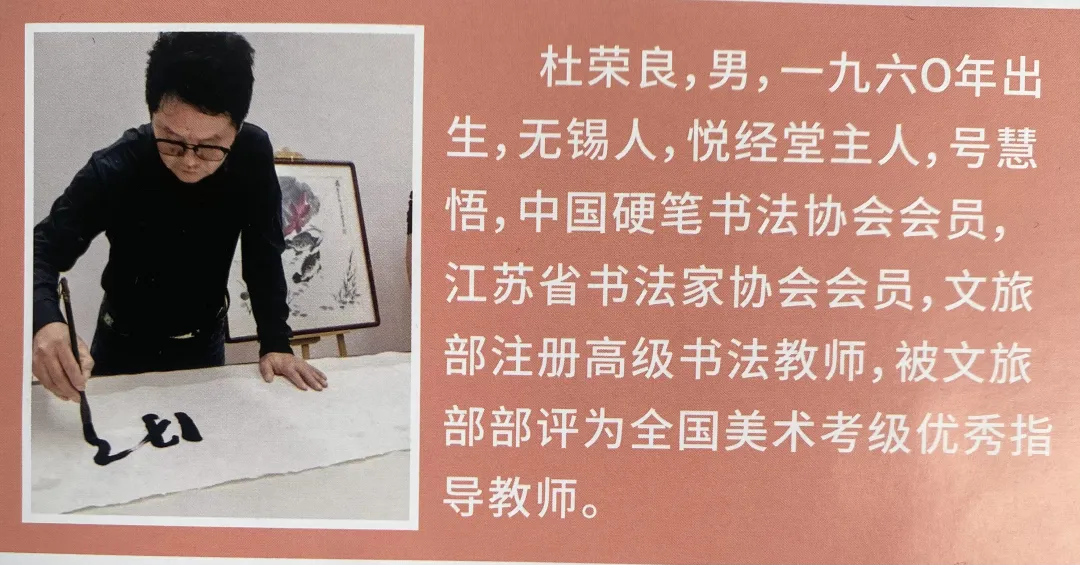 杜荣良，男，一九六O年出
生，无锡人，悦经堂主人，号慧
悟，中国硬笔书法协会会员，
江苏省书法家协会会员，文旅
部注册高级书法教师，被文旅
部部评为全国美术考级优秀指
导教师。